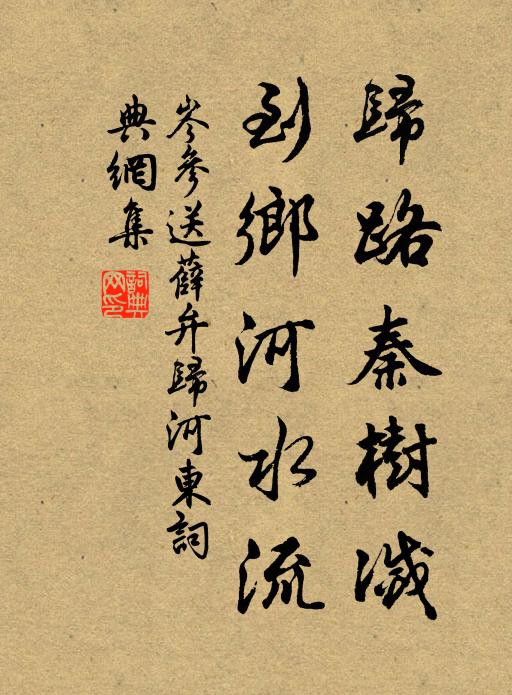 歸路秦樹滅
到鄉河水流
岑參送薛弁歸河東詞
典網集
詞典
网印